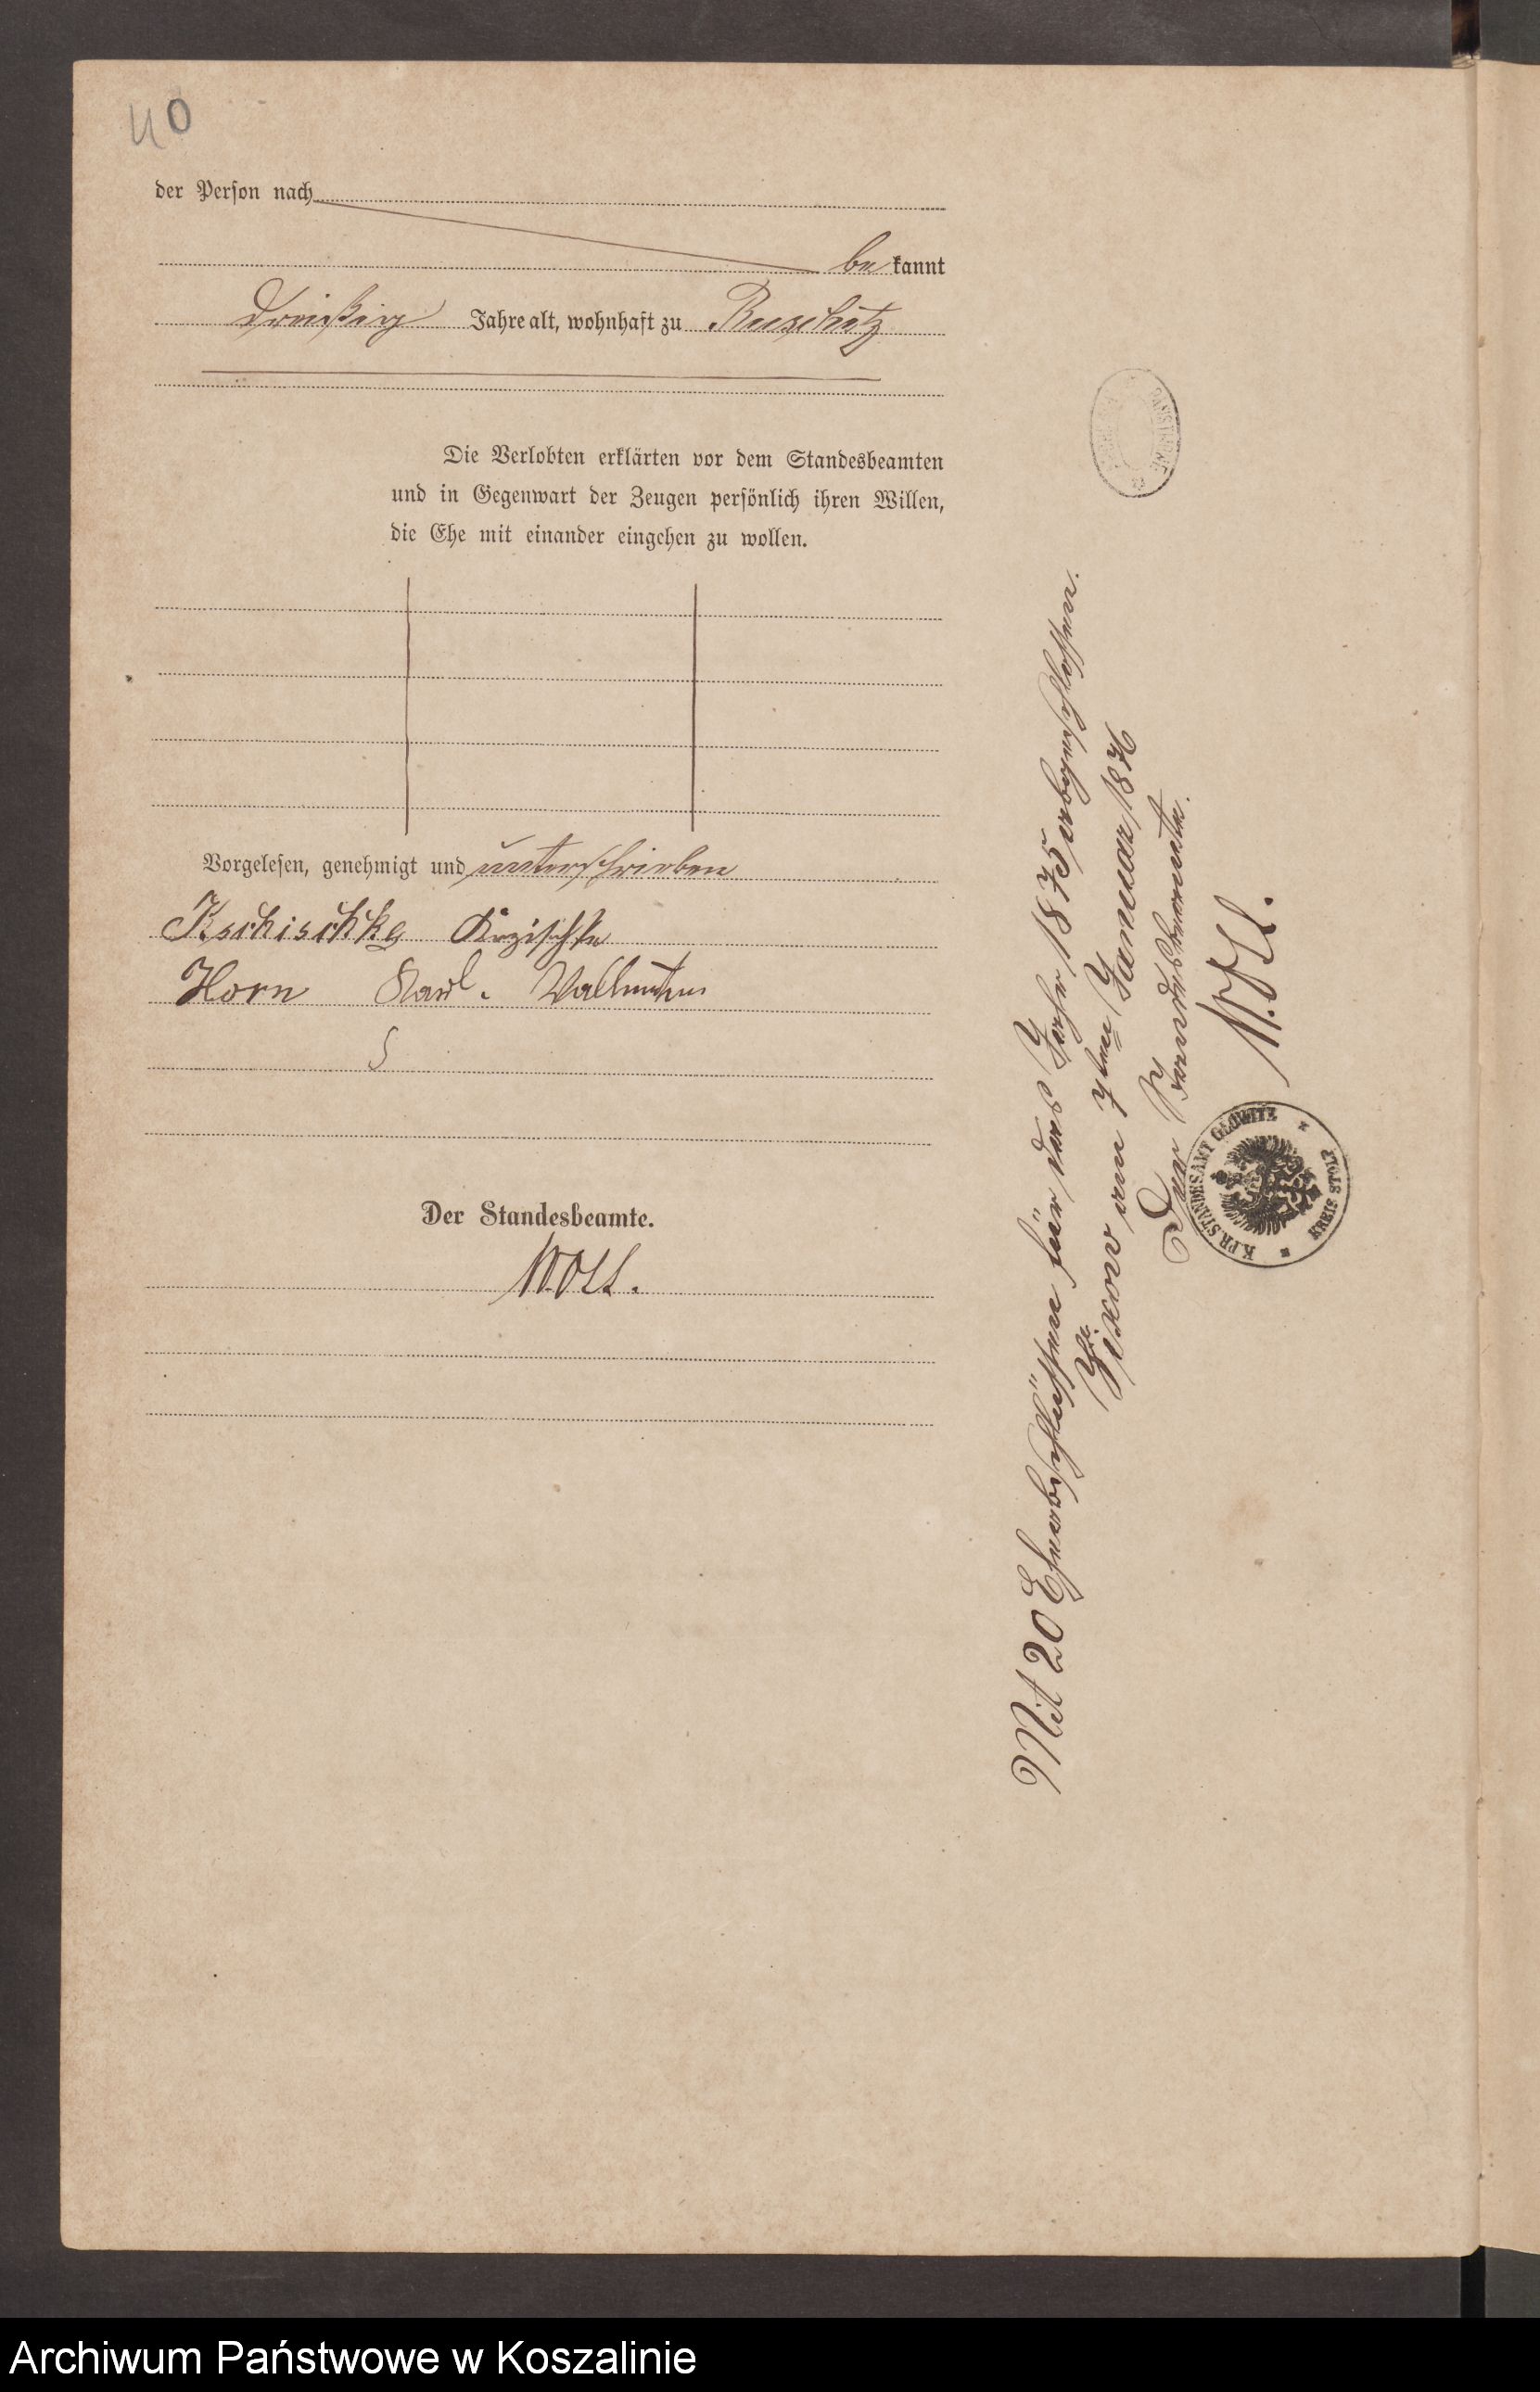 40
der Person nach
bekannt
dreißig Jahre alt, wohnhaft zu Ruschütz
Die Verlobten erklärten vor dem Standesbeamten
und in Gegenwart der Zeugen persönlich ihren Willen,
die Ehe mit einander eingehen zu wollen.
Vorgelesen, genehmigt und unterschrieben
Kschischke
Horn Karl.
Der Standesbeamte.
Woll.
Mit 20 Eheabschlüssen für das Jahr 1875 abgeschlossen.
Zixow am 7ten Januar 1876
Der Standesbeamte.
Woll.
K.PR.STANDESAMT GLOWITZ
KREIS STOLP
Archiwum Państwowe w Koszalinie